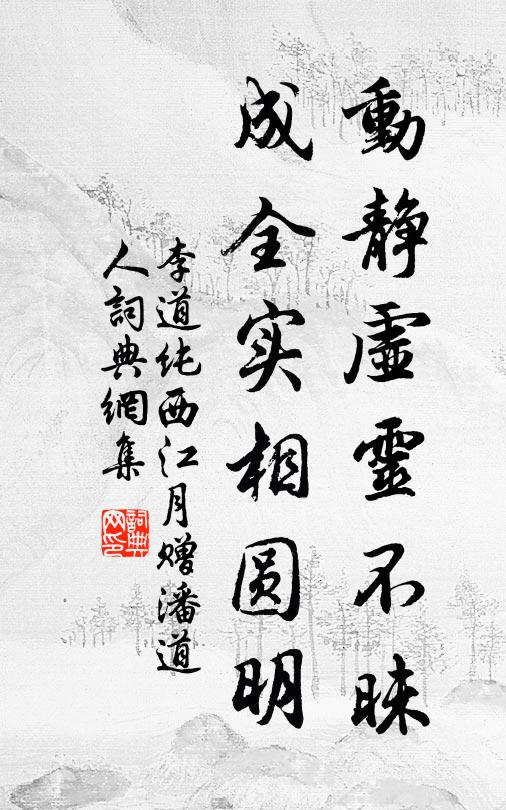 動静虛靈不昧
成全实相圆明
李道纯西江月赠潘道
人詞典網集
詞典
网印